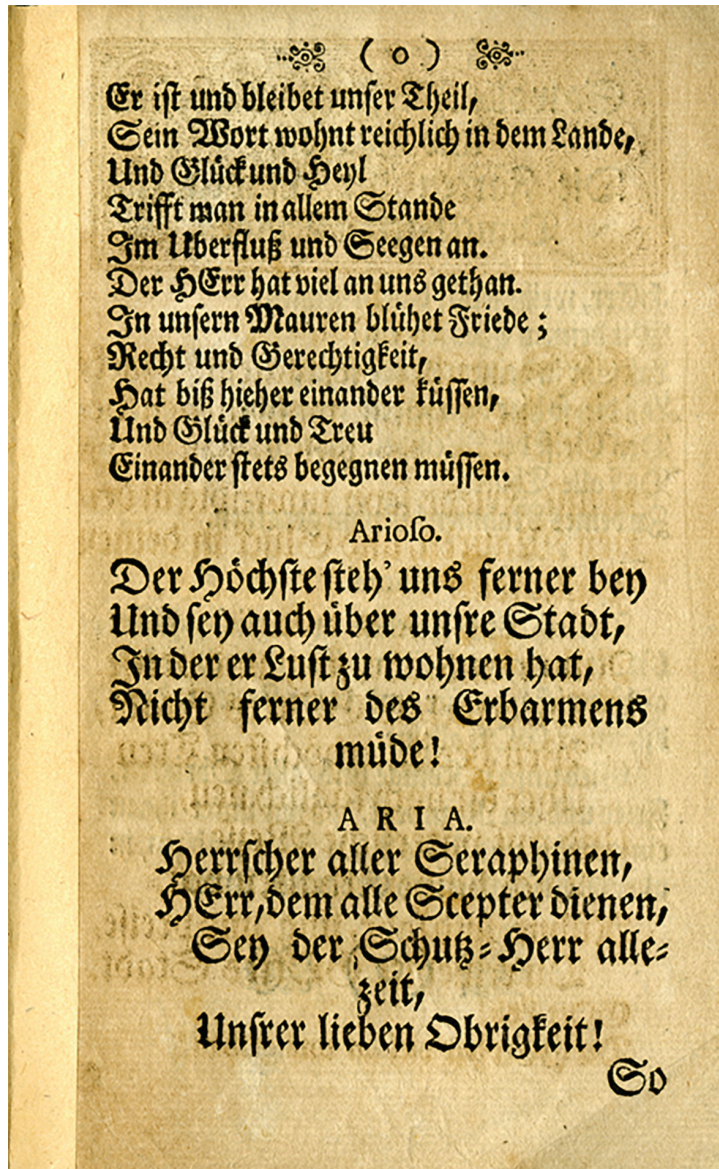 ( o )
Er ist und bleibet unser Theil,
Sein Wort wohnt reichlich in dem Lande,
Und Glück und Heyl
Trifft man in allem Stande
Im Uberfluß und Seegen an.
Der HErr hat viel an uns gethan.
In unsern Mauren blühet Friede;
Recht und Gerechtigkeit,
Hat biß hieher einander küssen,
Und Glück und Treu
Einander stets begegnen müssen.
Arioso.
Der Höchste steh' uns ferner bey
Und sey auch über unsre Stadt,
In der er Lust zu wohnen hat,
Nicht ferner des Erbarmens
müde!
ARIA.
Herrscher aller Seraphinen,
HErr, dem alle Scepter dienen,
Sey der Schutz-Herr alle-
zeit,
Unsrer lieben Obrigkeit!
So